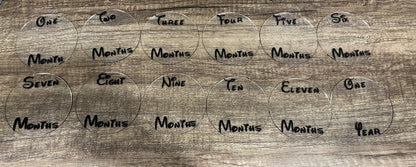 One
Month
Two
Months
Three
Months
Four
Months
Five
Months
Six
Months
Seven
Months
Eight
Months
Nine
Months
Ten
Months
Eleven
Months
One
Year